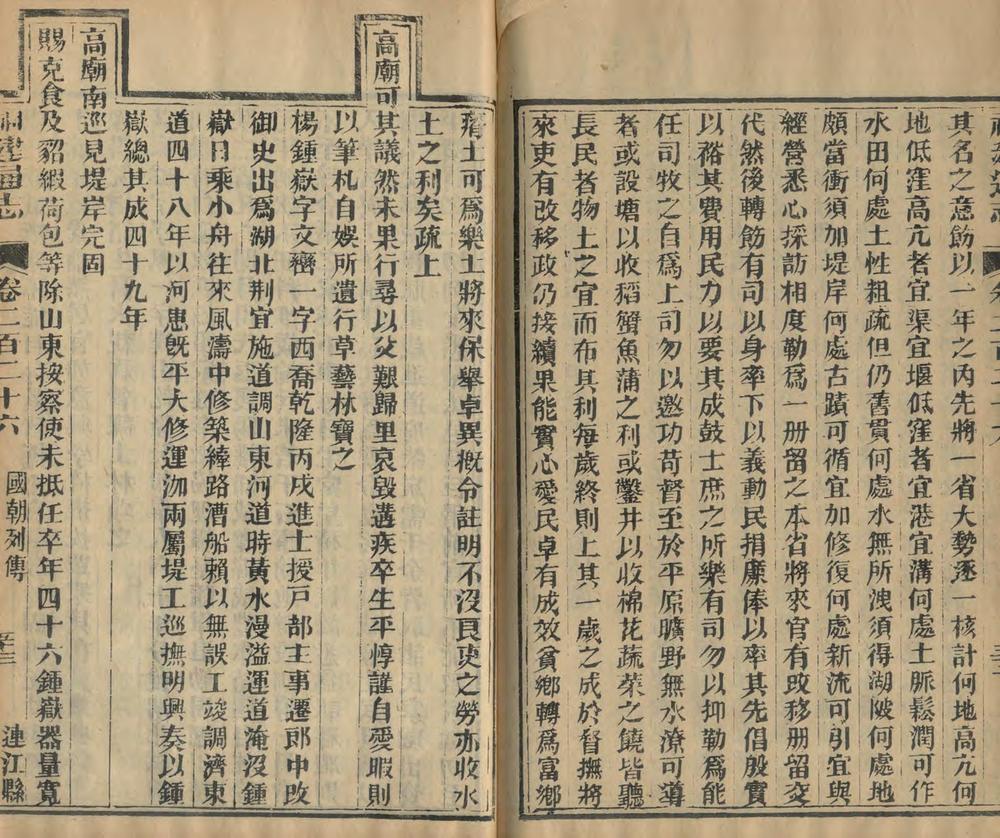 其名之意飭以一年之內先將一省大勢逐一核計何地高亢何
地低窪高亢者宜渠宜堰低窪者宜港宜溝何處土脈鬆潤可作
水田何處土性粗疏但仍舊貫何處水無所洩須得湖陂何處地
頗當衝須加堤岸何處古蹟可循宜加修復何處新流可引宜與
經營悉心採訪相度勒爲一册留之本省將來官有改移册留交
代然後轉飭有司以身率下以義動民捐廉俸以率其先倡殷實
以裕其費用民力以要其成鼓士庶之所樂有司勿以抑勒爲能
任司牧之自爲上司勿以邀功苛督至於平原曠野無水潦可導
者或設塘以收稻蟹魚蒲之利或鑿井以收棉花蔬菜之饒皆聽
長民者物土之宜而布其利每歲終則上其一歲之成於督撫將
來吏有改移政仍接續果能實心愛民卓有成效貧鄉轉爲富鄉
瘠土可爲樂土將來保舉卓異概令註明不沒良吏之勞亦收水
土之利矣疏上
高廟可其議然未果行尋以父艱歸里哀毀遘疾卒生平惇謹自愛暇則
以筆札自娛所遺行草藝林寶之
楊鍾嶽字文巒一字西喬乾隆丙戌進士授戸部主事遷郎中改
御史出爲湖北荆宜施道調山東河道時黃水漫溢運道淹沒鍾
嶽日乘小舟往來風濤中修築縴路漕船賴以無誤工竣調濟東
道四十八年以河患旣平大修運泇兩屬堤工巡撫明興奏以鍾
嶽總其成四十九年
高廟南巡見堤岸完固
賜克食及貂緞荷包等除山東按察使未抵任卒年四十六鍾嶽器量寬
卷二百二十六 國朝列傳 連江縣